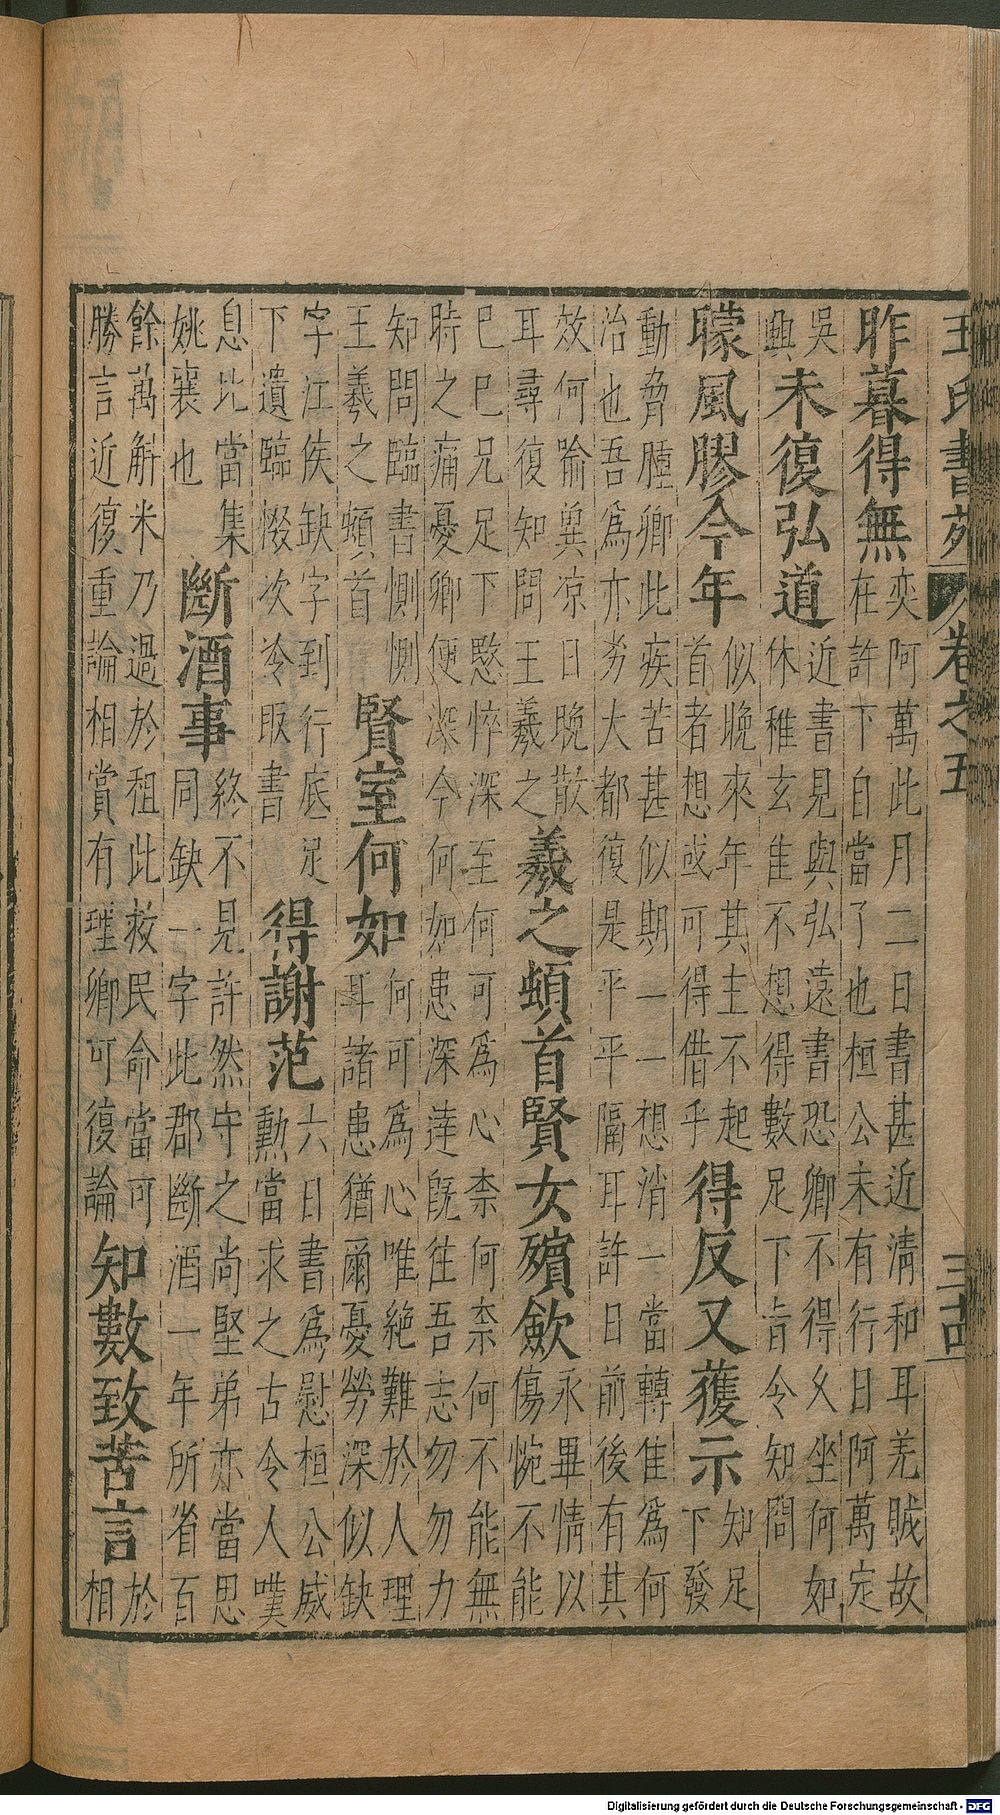 王氏書苑 卷之五
昨暮得無
奕阿萬此月二日書甚近清和耳羌賊故
在許下自當了也桓公未有行日阿萬定
吳
興
未復弘道
近書見與弘遠書恐卿不得父坐何如
休稚玄隹不想得數足下旨令知問
朦風膠今年
似晚來年其主不起
首者想或可得借乎
得反又蒦示
知足
下發
動脅腫卿此疾苦甚似期一一想消一當轉隹為何
治也吾為亦劣大都復是平平隔耳許日前後有其
效何喻冀凉日晚散
耳尋復知問王羲之
羲之頓首賢女殯歛
永畢情以
傷惋不能
已已兄足下愍悴深至何可為心柰何柰何不能無
時之痛憂卿便深今何如患深達旣往吾志勿勿力
知問臨書惻惻
王羲之頓首
賢室何如
何可為心唯絕難於人理
耳諸患猶爾憂勞深似缺
字江侯缺字到行底足
下遺臨惙次冷眼書
得謝范
六日書為慰桓公威
勳當求之古令人嘆
息比當集
姚襄也
斷酒事
終不見許然守之尚堅弟亦當思
同缺一字此郡斷酒一年所省百
餘萬斛米乃過於租此救民命當可
勝言近復重論相賞有理卿可復論
知數致苦言
於
相
Digitalisierung gefördert durch die Deutsche Forschungsgemeinschaft - DFG